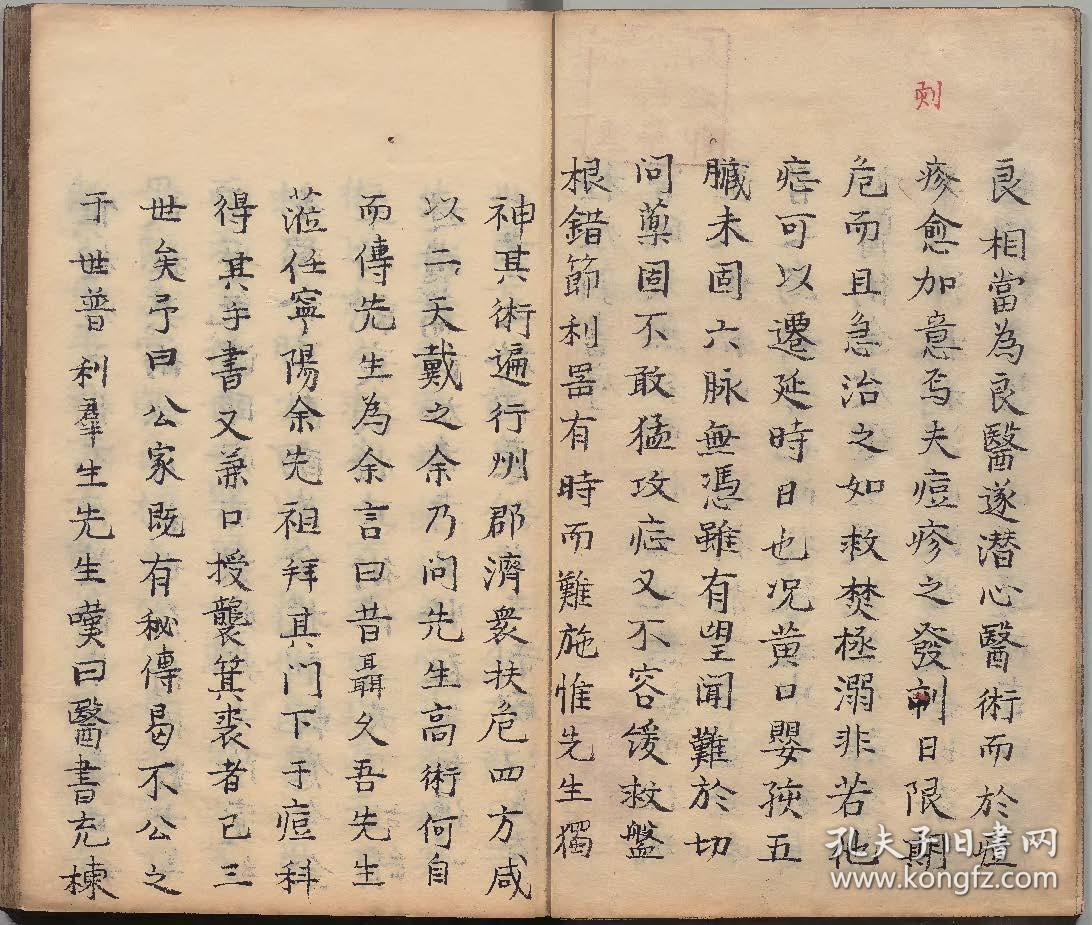 刻
良相當為良醫遂潜心醫術而於痘
疹愈加意焉夫痘疹之發刺日限期
危而且急治之如救焚極溺非若他
症可以遷延時日也况黄口嬰孩五
臟未固六脉無憑雖有望聞難於切
問藥固不敢猛攻症又不容缓救盤
根錯節利噐有時而難施惟先生獨
神其術遍行州郡濟衆扶危四方咸
以二天戴之余乃问先生高術何自
而傳先生為余言曰昔聶久吾先生
蒞任寧陽余先祖拜其门下于痘科
得其手書又兼口授襲箕裘者已三
世矣予曰公家既有秘傳曷不公之
于世普利羣生先生嘆曰醫書充棟
孔夫子旧書网
www.kongfz.com